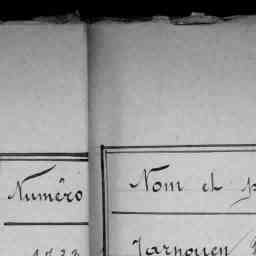 Numéro
Nom et
Jarnouen